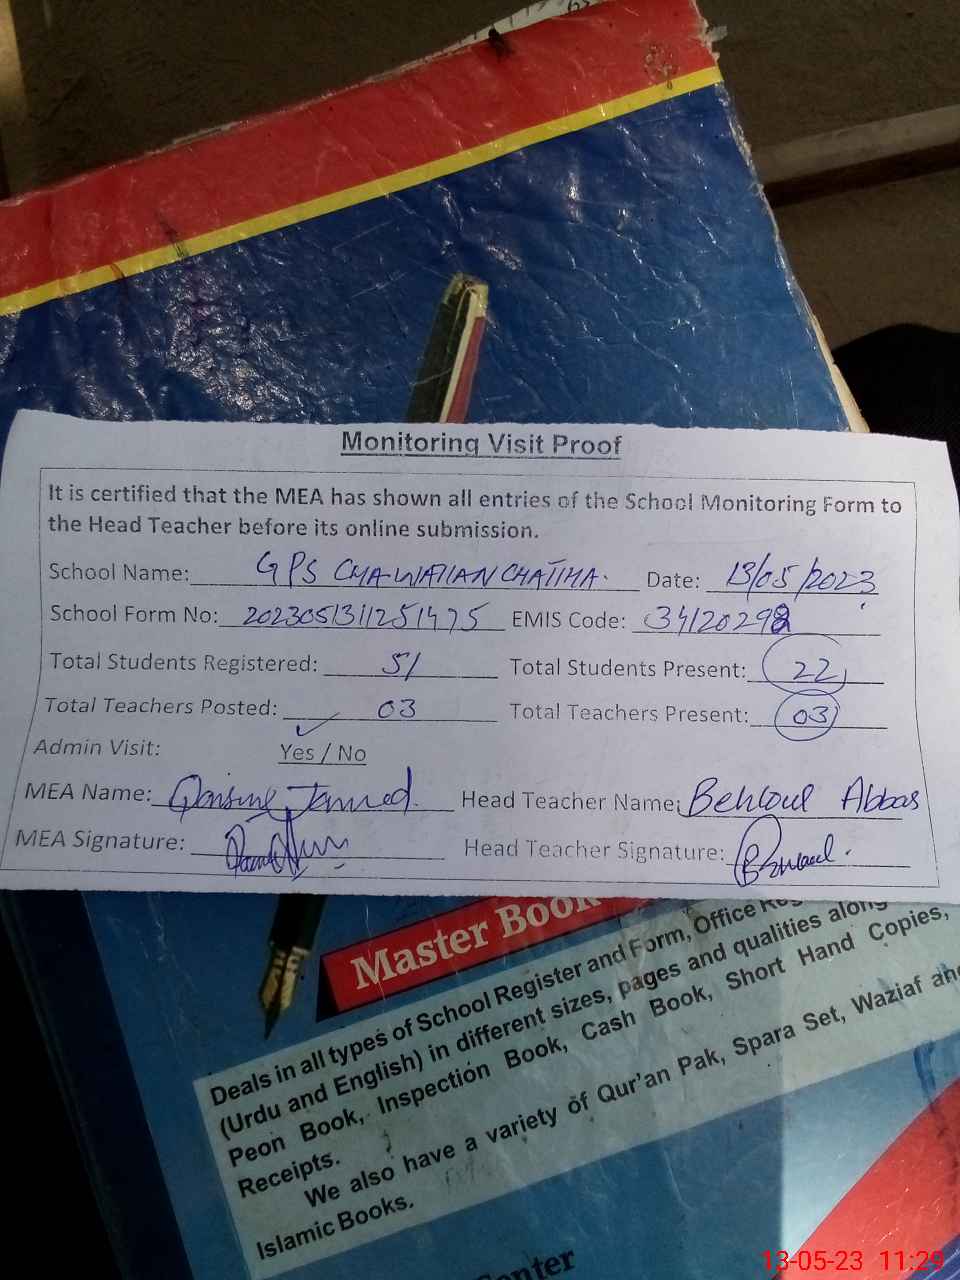 Monitoring Visit Proof
It is certified that the MEA has shown all entries of the School Monitoring Form to
the Head Teacher before its online submission.
School Name: GPS Date: 13/05/2023
School Form No: 2023051311251475 EMIS Code: 34120298
Total Students Registered: 51 Total Students Present: 22
Total Teachers Posted: 03 Total Teachers Present: 03
Admin Visit: Yes / No
MEA Name: Head Teacher Name: Behloul Abbas
MEA Signature: Head Teacher Signature:
Master Book
Deals in all types of School Register and Form, Office
(Urdu and English) in different sizes, pages and qualities along
Peon Book, Inspection Book, Cash Book, Short Hand Copies,
Receipts.
We also have a variety of Qur'an Pak, Spara Set, Waziaf and
Islamic Books.
13-05-23 11:29